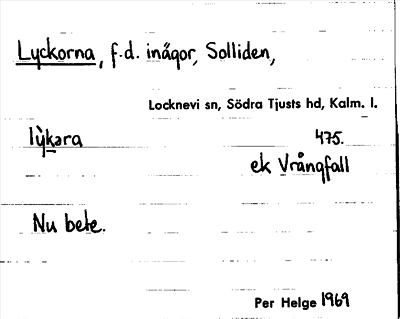 Lyckorna, f.d. inägor, Solliden,
Locknevi sn, Södra Tjusts hd, Kalm. l.
lỳkara 475.
ek Vrångfall
Nu bete.
Per Helge 1969